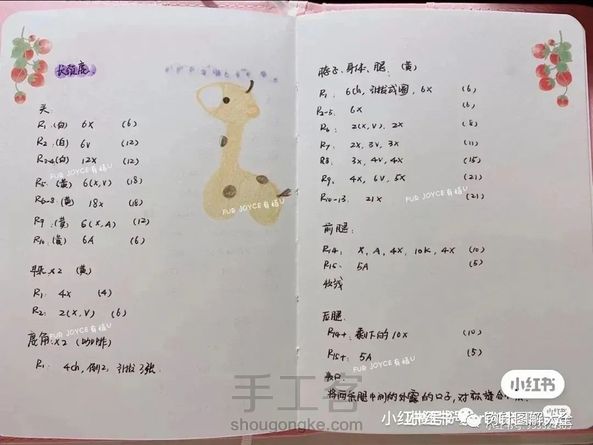 长颈鹿
头
R1.(白) 6X (6)
R2.(白) 6V (12)
R3-4(白) 12X (12)
R5.(黄) 6(X,V) (18)
R6-8(黄) 18X (18)
R9.(黄) 6(X,A) (12)
R10.(黄) 6A (6)
耳朵x2 (黄)
R1: 4X (4)
R2: 2(X,V) (6)
鹿角x2 (咖啡)
R1: 4ch, 倒2, 引拔3针
脖子、身体、腿: (黄)
R1: 6ch, 引拔成圈, 6X (6)
R2-5: 6X (6)
R6: 2(X,V), 2X (8)
R7: 2X, 3V, 3X (11)
R8: 3X, 4V, 4X (15)
R9: 4X, 6V, 5X (21)
R10-13: 21X (21)
前腿:
R14: X, A, 4X, 10K, 4X (10)
R15: 5A (5)
收线
后腿:
R14+: 剩下的10X (10)
R15+: 5A (5)
将两条腿中间的外露的口子,对称缝合
FUR JOYCE有福U
FUR JOYCE有福U
FUR JOYCE有福U
FUR JOYCE有福U
FUR JOYCE有福U
FUR JOYCE有福U
手工客
shougongke.com
小红书
小红书